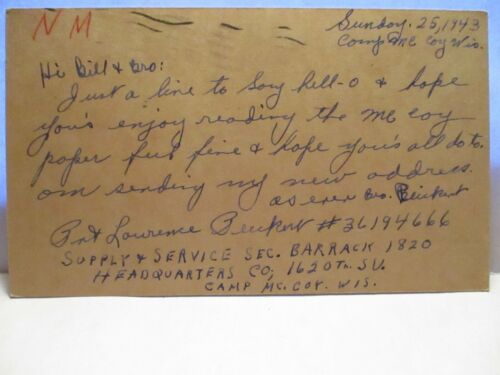 NM
Sunday. 25, 1943
Camp Mc Coy Wis.
Hi Bill & Bro:
Just a line to Say hell-o & hope
you's enjoy reading the Mc Coy
paper fus fine & hope you's all do to.
am sending my new address.
as ever Bro. Beickert
Pvt Lawrence Beickert # 36194666
SUPPLY & SERVICE SEC. BARRACK 1820
HEADQUARTERS CO; 1620TH. SU.
CAMP MC. COY. WIS.